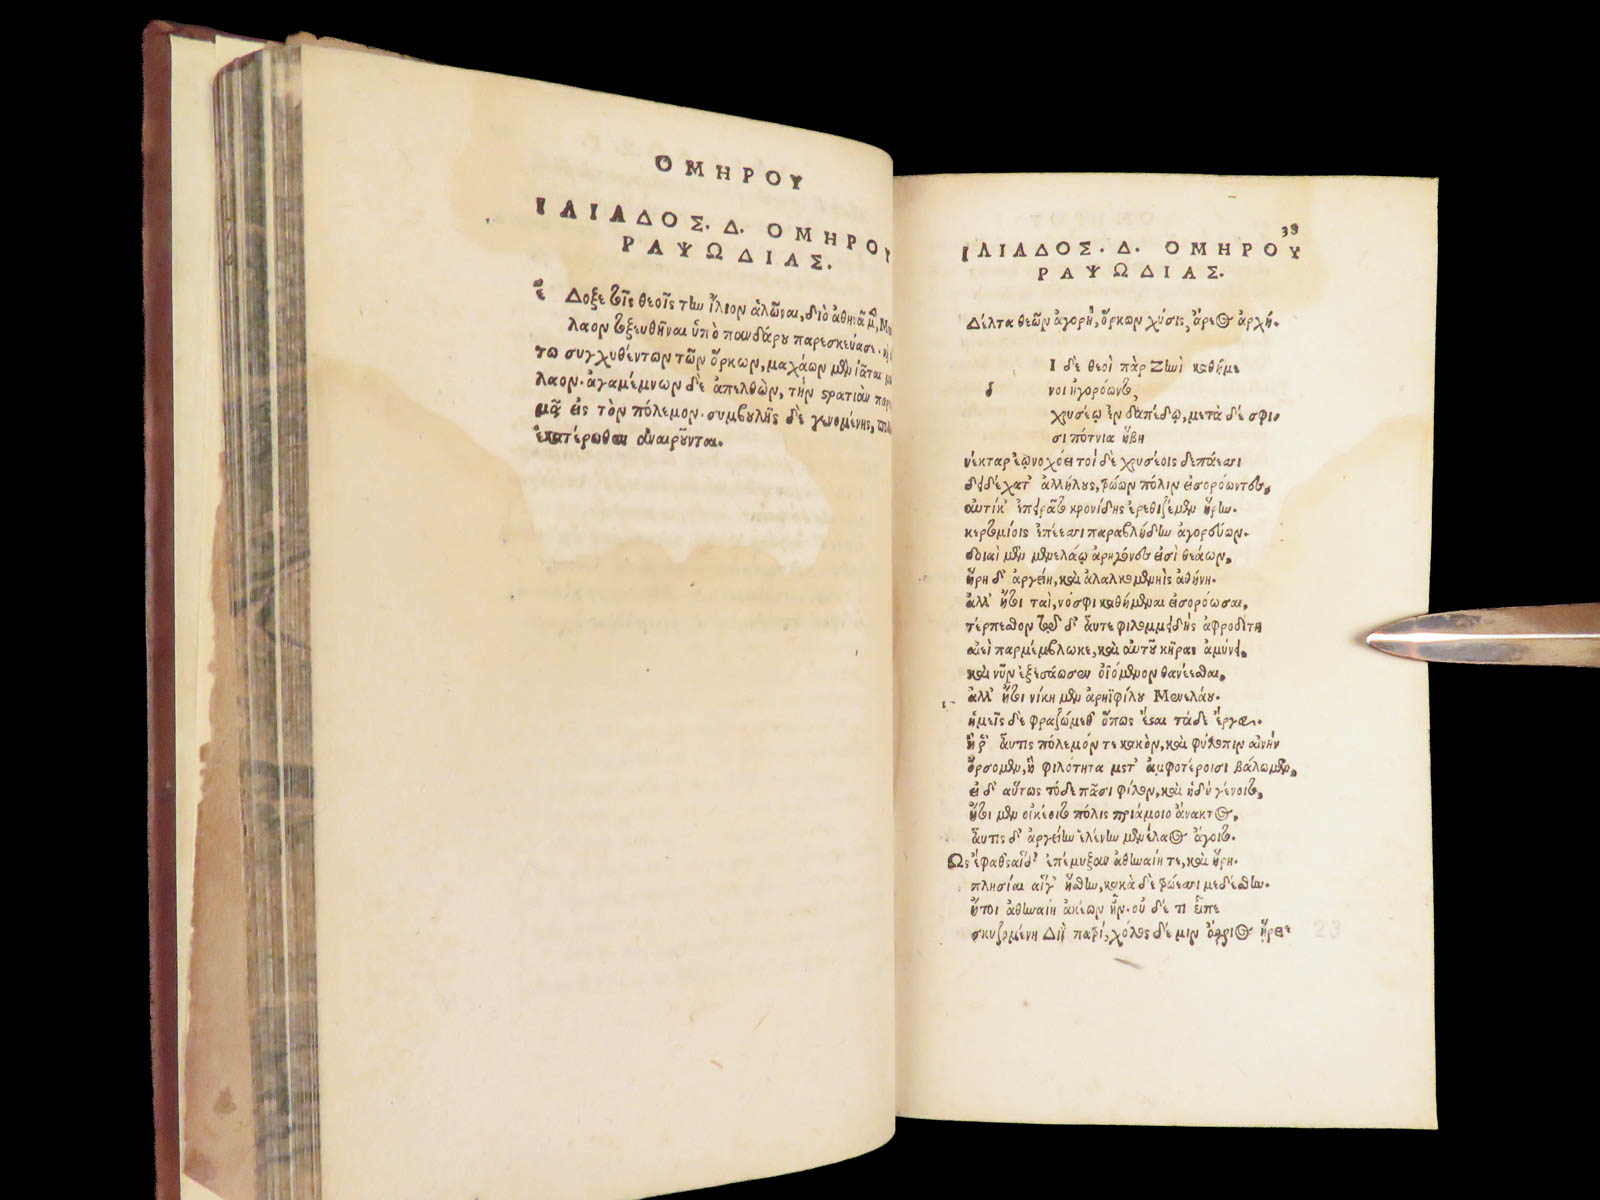 ΟΜΗΡΟΥ
ΙΛΙΑΔΟΣ. Δ. ΟΜΗΡΟΥ
ΡΑΨΩΔΙΑΣ.
ἔ Δοξε τοῖς θεοῖς τὴν ἴλιον ἁλῶναι, διὸ ἀθηνᾶ μ̂, Με
λαον τοξευθῆναι ὑπὸ πανδάρου παρεσκεύασε.
τω συγχυθέντων τῶν ὅρκων, μαχάων μὲν ἰᾶται
λαον. ἀγαμέμνων δὲ ἀπελθὼν, τὴν στρατιὰν παρ
μᾷ εἰς τὸν πόλεμον. συμβολῆς δὲ γενομένης,
ἑκατέρωθεν ἀναιροῦνται.
39
ΙΛΙΑΔΟΣ. Δ. ΟΜΗΡΟΥ
ΡΑΨΩΔΙΑΣ.
Δέλτα θεῶν ἀγορή, ὅρκων χύσις, ἄρεος ἀρχή.
Ι δὲ θεοὶ πὰρ Ζηνὶ καθήμε
δ νοι ἠγορόωντο,
χρυσέῳ ἐν δαπέδῳ, μετὰ δέ σφι
σι πότνια ἥβη
νέκταρ ἐῳνοχόει τοὶ δὲ χρυσέοις δεπάεσσι
δειδέχατ' ἀλλήλους, τρώων πόλιν εἰσορόωντες,
αὐτίκ' ἐπειρᾶτο κρονίδης ἐρεθιζέμεν ἥρην.
κερτομίοις ἐπέεσσι παραβλήδην ἀγορεύων.
δοιαὶ μὲν μενελάῳ ἀρηγόνες εἰσὶ θεάων,
ἥρη δ' ἀργείη, καὶ ἀλαλκομενηῒς ἀθήνη.
ἀλλ' ἤτοι ταὶ, νόσφι καθήμεναι εἰσορόωσαι,
τέρπεσθον τῷ δ' αὖτε φιλομμειδὴς ἀφροδίτη
αἰεὶ παρμέμβλωκε, καὶ αὐτοῦ κῆρας ἀμύνει,
καὶ νῦν ἐξεσάωσεν ὀϊόμενον θανέεσθαι,
ἀλλ' ἤτοι νίκη μὲν ἀρηϊφίλου Μενελάου.
ἡμεῖς δὲ φραζώμεθ' ὅπως ἔσται τάδε ἔργα.
ἤ ῥ' αὖτις πόλεμόν τε κακὸν, καὶ φύλοπιν αἰνὴν
ὄρσομεν, ἢ φιλότητα μετ' ἀμφοτέροισι βάλωμεν,
εἰ δ' αὕτως τόδε πᾶσι φίλον, καὶ ἡδὺ γένοιτο,
ἤτοι μὲν οἰκέοιτο πόλις πριάμοιο ἄνακτος,
αὖτις δ' ἀργείην ἑλένην μενέλαος ἄγοιτο.
Ως ἔφαθ' αἱδ' ἐπέμυξαν ἀθηναίη τε, καὶ ἥρη.
πλησίαι αἵγ' ἥσθην, κακὰ δὲ τρώεσσι μεδέσθην.
ἤτοι ἀθηναίη ἀκέων ἦν. οὐ δέ τι εἶπε
σκυζομένη Διῒ πατρί, χόλος δέ μιν ἄγριος ᾕρει
23